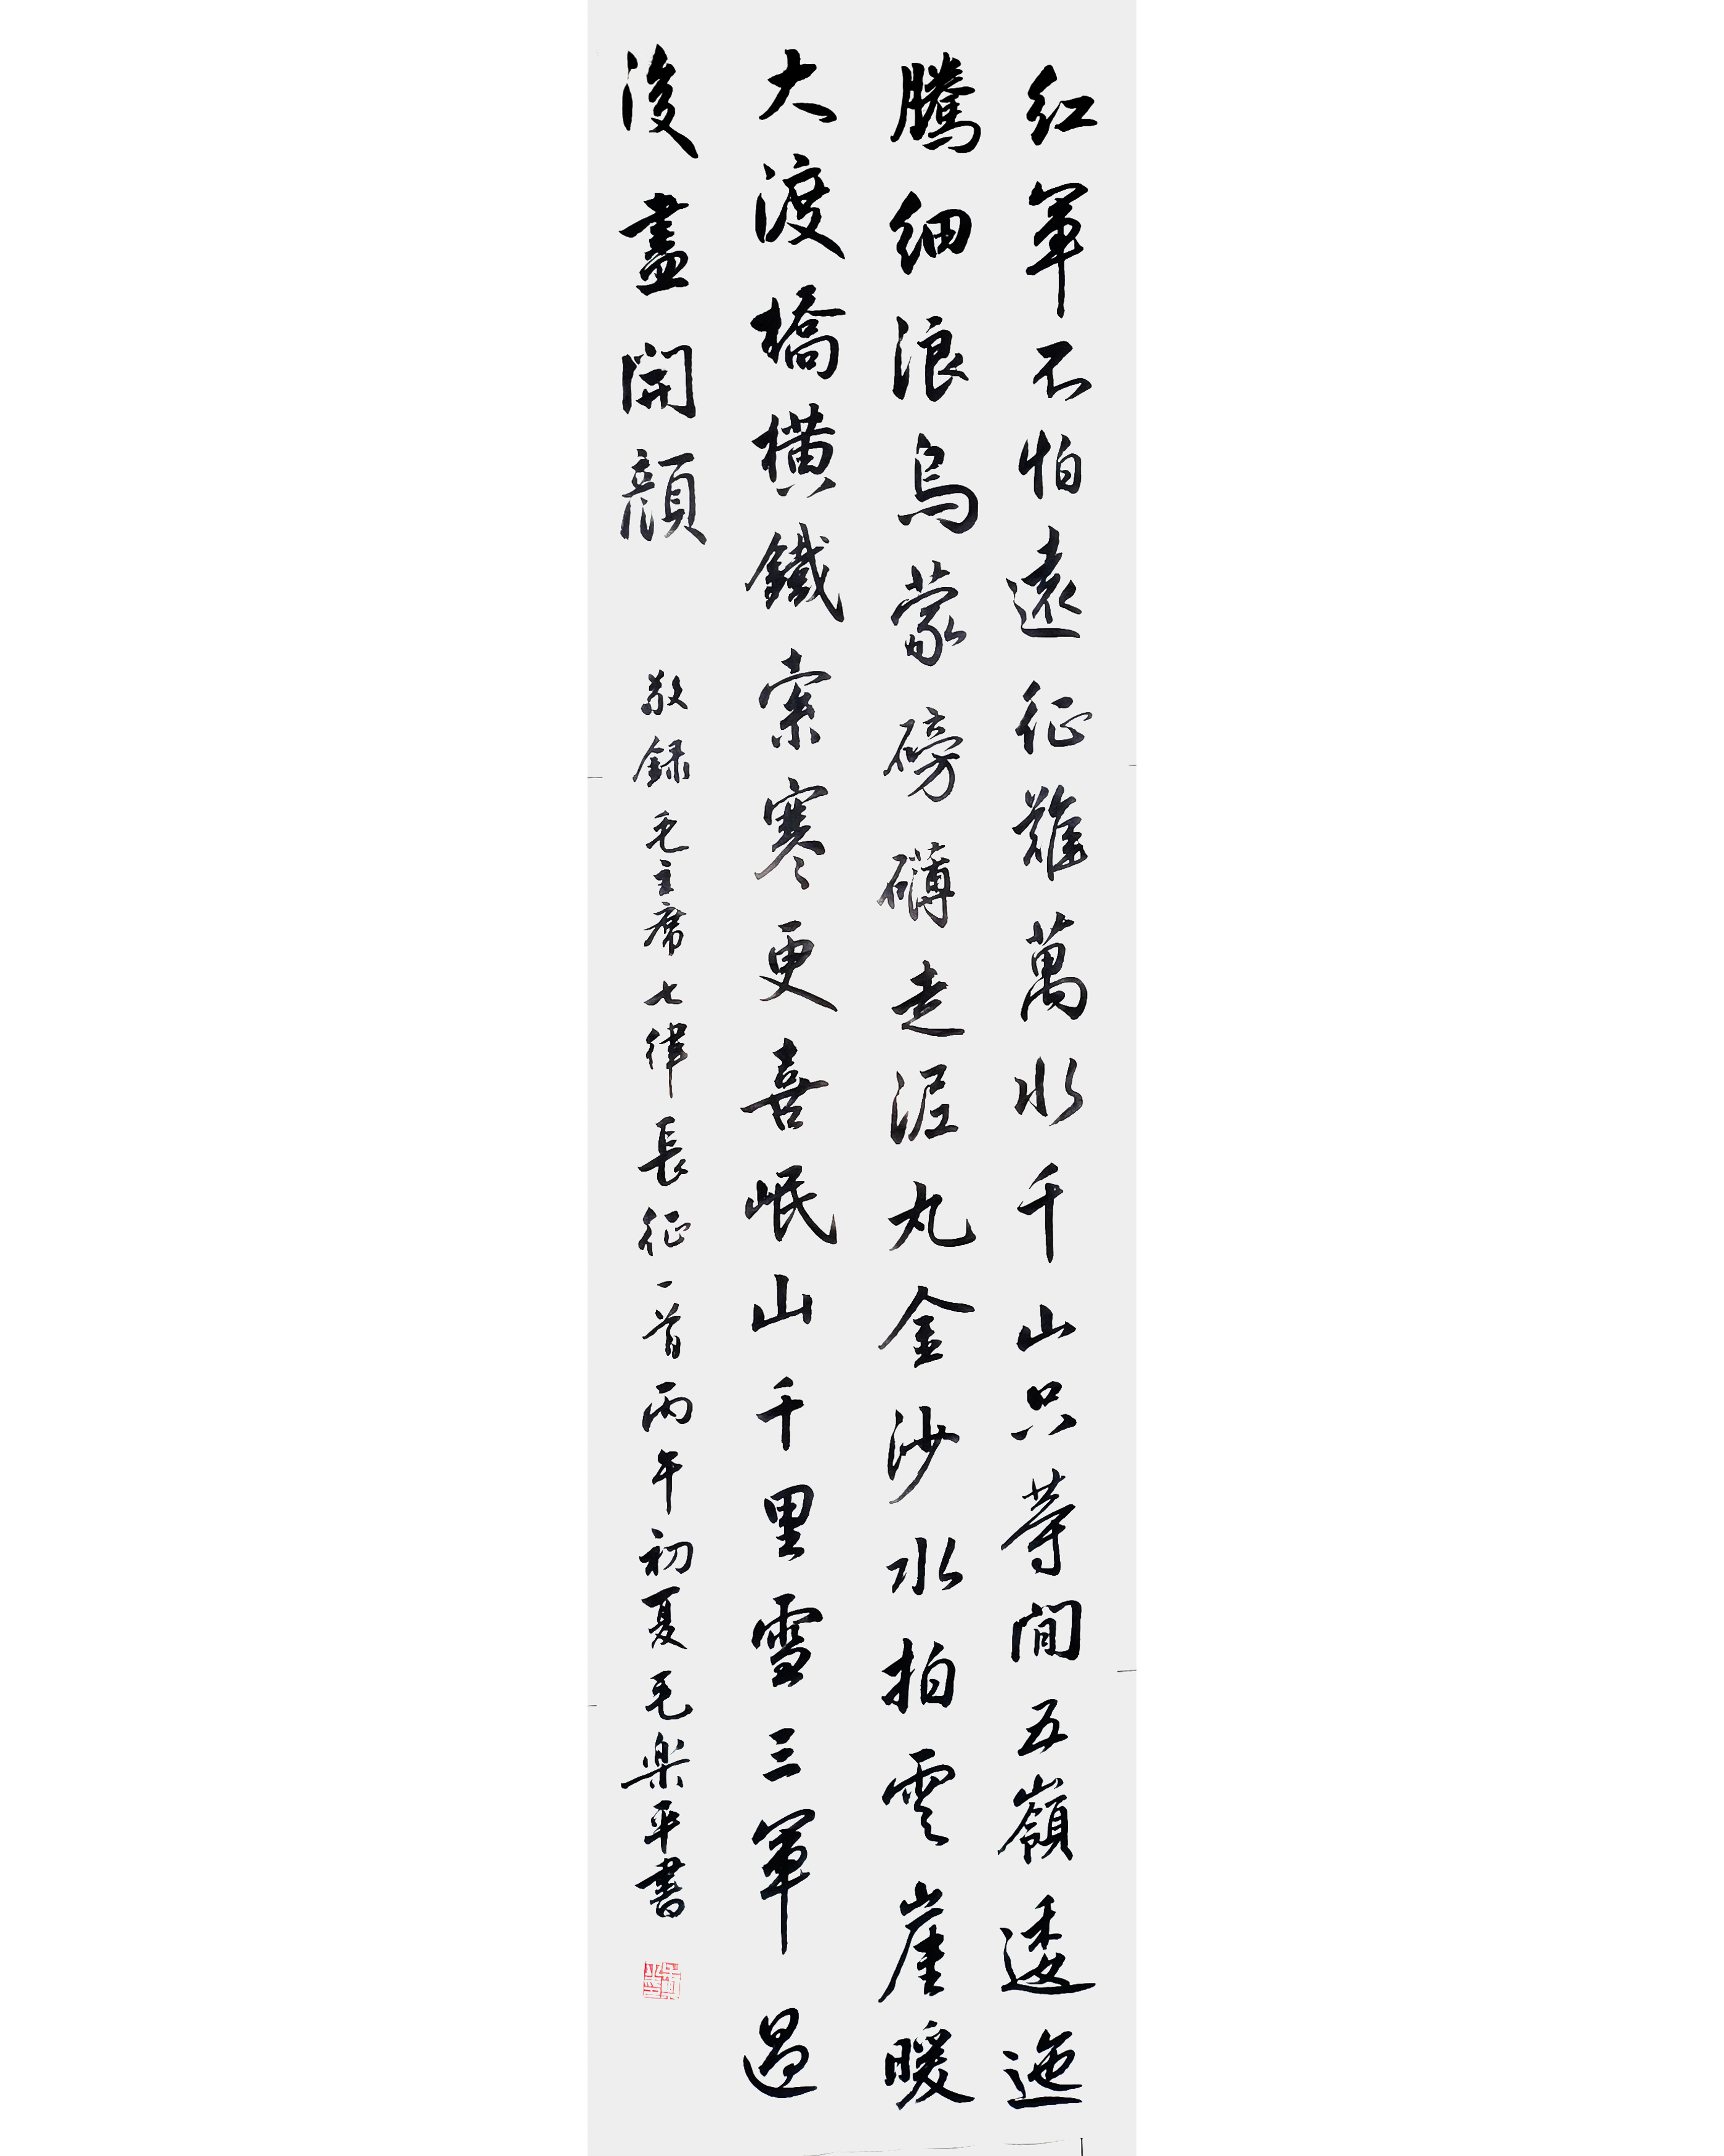 紅軍不怕遠征難萬水千山只等閒五嶺逶迤
騰細浪烏蒙磅礴走泥丸金沙水拍雲崖暖
大渡橋橫鐵索寒更喜岷山千里雪三軍過
後盡開顏
敬録毛主席七律長征一首丙午初夏毛樂平書